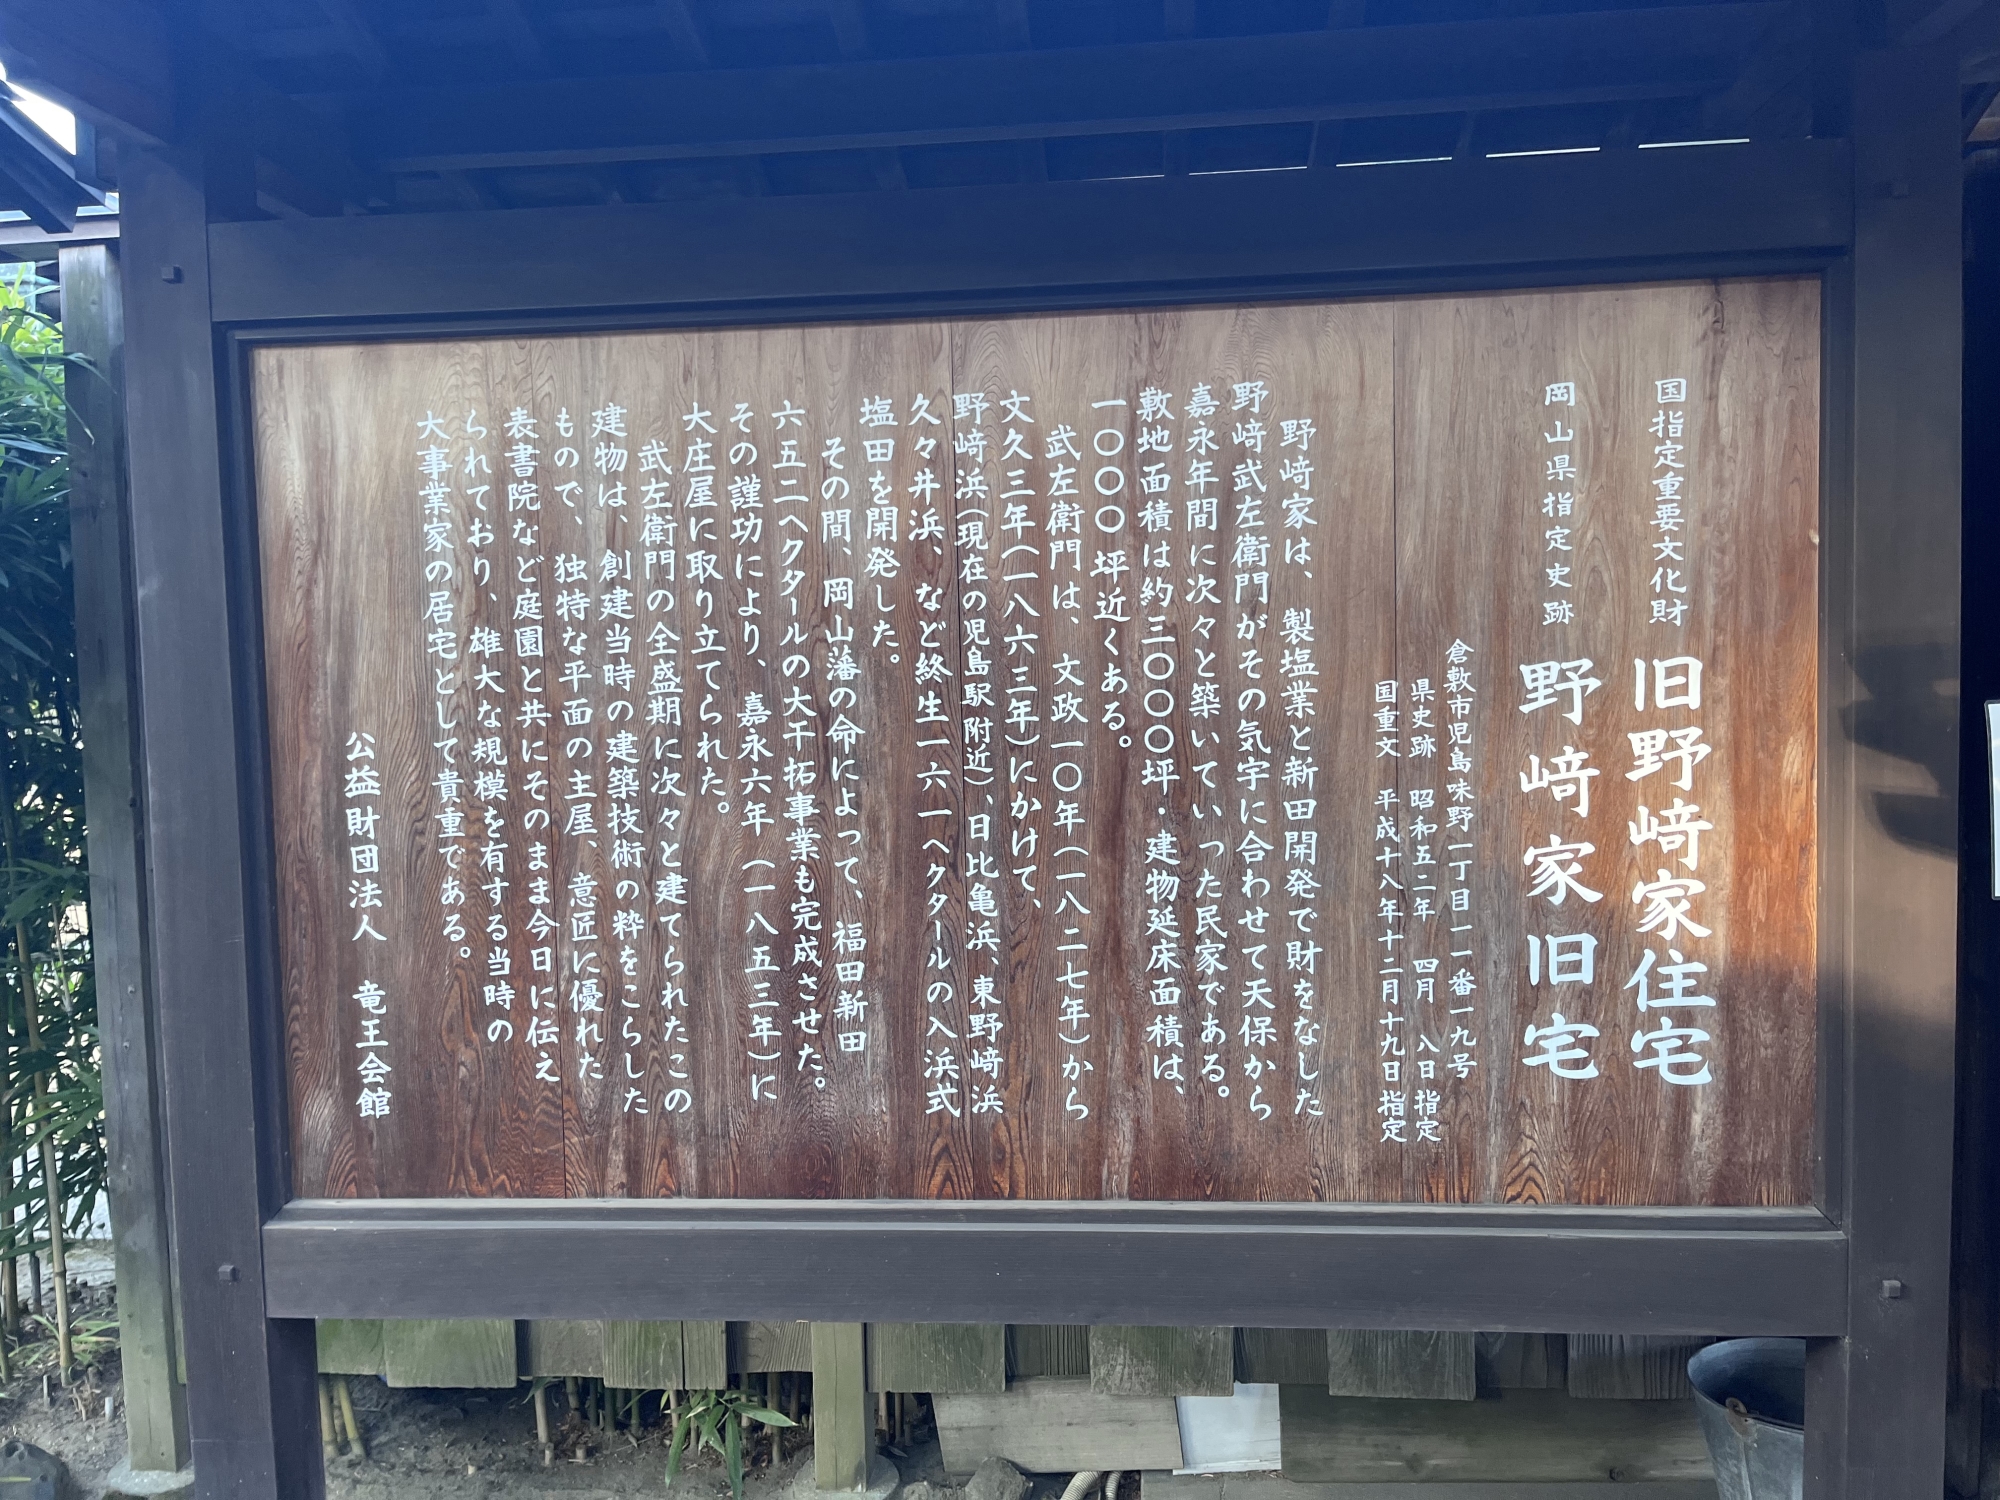 国指定重要文化財 旧野﨑家住宅
岡山県指定史跡 野﨑家旧宅
倉敷市児島味野一丁目一一番一九号
県史跡 昭和五二年 四月 八日指定
国重文 平成十八年十二月十九日指定
野﨑家は、製塩業と新田開発で財をなした
野﨑武左衛門がその気宇に合わせて天保から
嘉永年間に次々と築いていった民家である。
敷地面積は約三〇〇〇坪・建物延床面積は、
一〇〇〇坪近くある。
武左衛門は、文政一〇年(一八二七年)から
文久三年(一八六三年)にかけて、
野﨑浜(現在の児島駅附近)、日比亀浜、東野﨑浜
久々井浜、など終生一六一ヘクタールの入浜式
塩田を開発した。
その間、岡山藩の命によって、福田新田
六五二ヘクタールの大干拓事業も完成させた。
その謹功により、嘉永六年(一八五三年)に
大庄屋に取り立てられた。
武左衛門の全盛期に次々と建てられたこの
建物は、創建当時の建築技術の粋をこらした
もので、独特な平面の主屋、意匠に優れた
表書院など庭園と共にそのまま今日に伝え
られており、雄大な規模を有する当時の
大事業家の居宅として貴重である。
公益財団法人 竜王会館